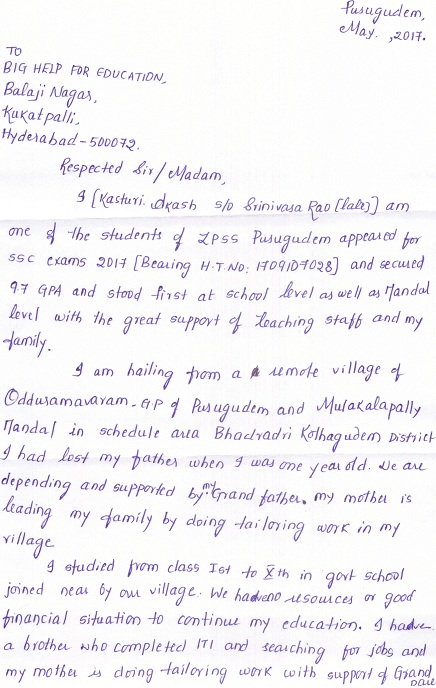 Pusugudem,
May. ,2017.
TO
BIG HELP FOR EDUCATION,
Balaji Nagar,
Kukatpalli,
Hyderabad-500072.
Respected Sir/Madam,
I [Kasturi. Akash s/o Srinivasa Rao [late]] am
one of the students of ZPSS Pusugudem appeared for
SSC exams 2017 [Bearing H.T.No: 1709107028] and secured
9.7 GPA and stood first at school level as well as Mandal
level with the great support of teaching staff and my
family.
I am hailing from a remote village of
Oddusamavaram-G.P of Pusugudem and Mulakalapally
Mandal in schedule area Bhadradri Kothagudem District
I had lost my father when I was one year old. We are
depending and supported by my Grand father. my mother is
leading my family by doing tailoring work in my
village
I studied from class Ist to Xth in govt school
joined near by our village. We had no resources or good
financial situation to continue my education. I have
a brother who completed ITI and searching for jobs and
my mother is doing tailoring work with support of Grand